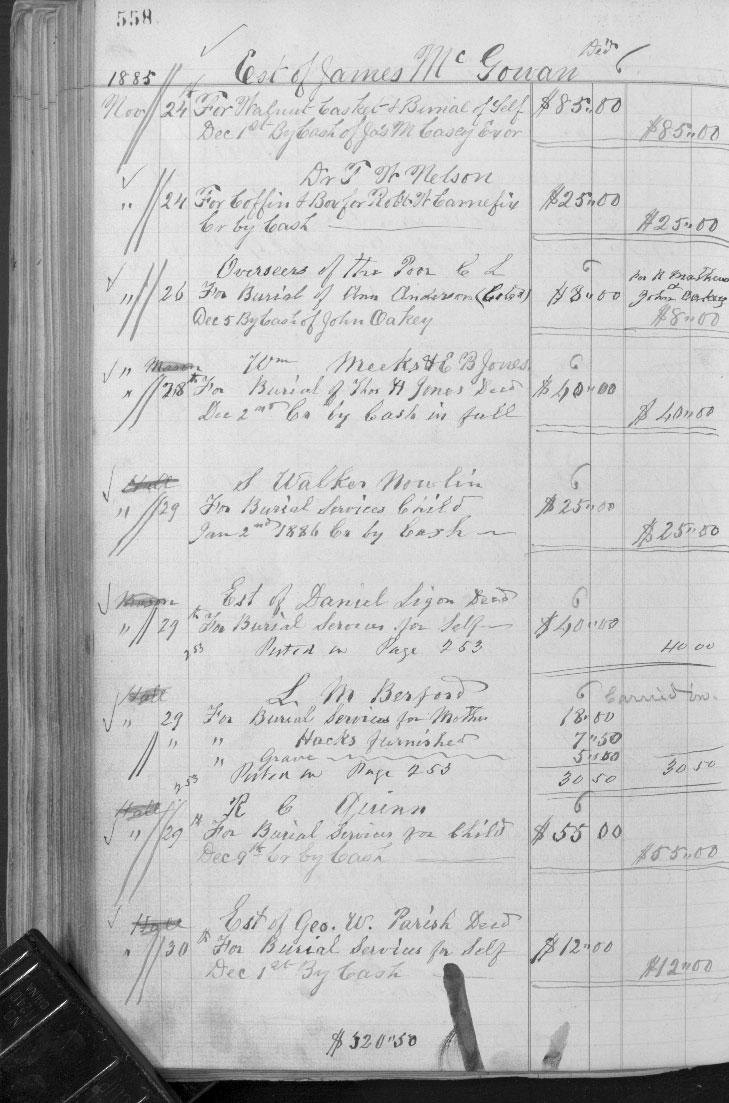 558
1885 Est of James Mc Gowan Decd
Nov 24th For Walnut Casket & Burial of Self $85.00
Dec 1st By Cash of Jas M Casey Exor $85.00
Dr T W Nelson
" 24 For Coffin & Box for Robt W Carnefix $25.00
Cr by Cash $25.00
Overseers of the Poor C L
" 26 For Burial of Ann Anderson (Cold) $8.00 John Oakey
Dec 5 By Cash of John Oakey $8.00
" Mason Wm Meeks & E B Jones
" 28th For Burial of Thos H Jones Decd $40.00
Dec 2nd Cr by Cash in full $40.00
Hall S Walker Nowlin
" 29 For Burial Services Child $25.00
Jan 2nd 1886 Cr by Cash $25.00
Mason Est of Daniel Ligon Decd
" 29th For Burial Services for Self $40.00
253 Posted in Page 253 40 00
Hall L M Berford Carried in
" 29 For Burial Services for Mother 18.00
" " Hacks furnished 7.50
" Grave 5.00
253 Posted in Page 253 30 50 30 50
Hall R C Quinn
" 29th For Burial Services for Child $55 00
Dec 9th Cr by Cash $55.00
Hall Est of Geo. W. Parish Decd
" 30th For Burial Services for Self $12.00
Dec 1st By Cash $12.00
$320.50